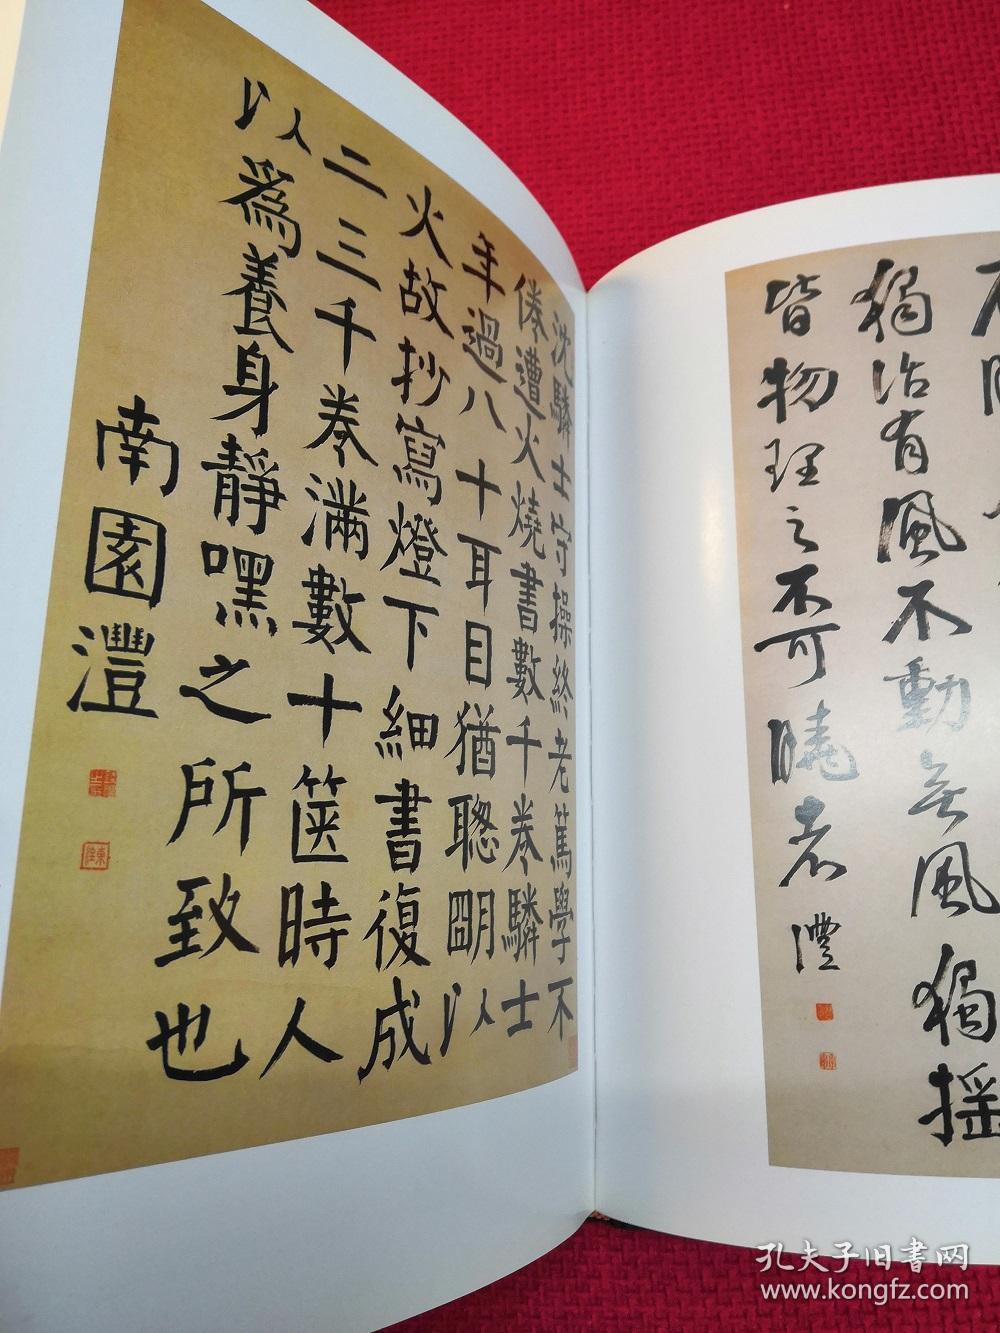 獨活有風不動無風獨搖
皆物理之不可曉者 灃
沈驎士守操終老篤學不
倦遭火燒書數千卷驎士
年過八十耳目猶聰朙以
火故抄寫燈下細書復成
二三千卷滿數十篋時人
以爲養身靜嘿之所致也
南園灃
孔夫子旧書网
www.kongfz.com